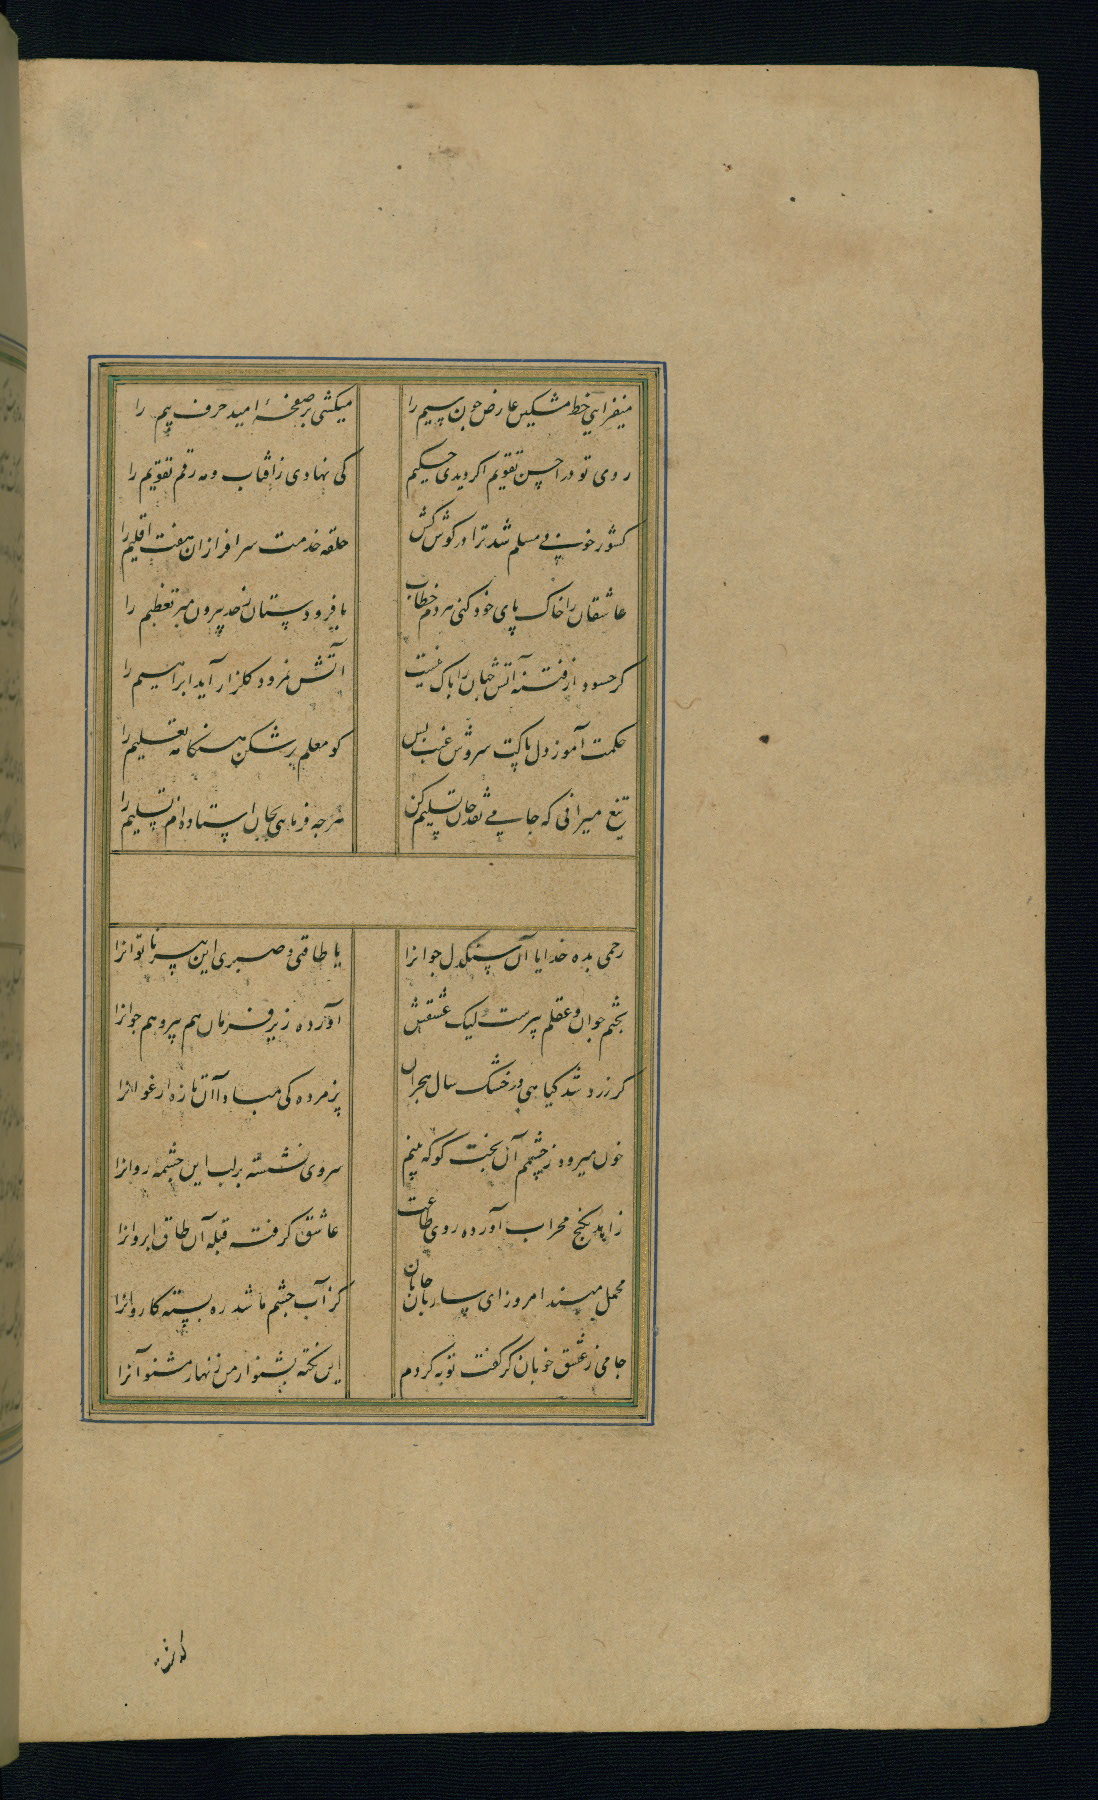 میفزایی خط مشکین عارض چون سیم را
میکشی بر صفحهٔ امید حرف بیم را
روی تو در احسن تقویم اگر دیدی حکیم
کی نهادی ز آفتاب و مه رقم تقویم را
کشور خوبی مسلم شد ترا در گوش کش
حلقه خدمت سرافرازان هفت اقلیم را
عاشقان را خاک پای خود کنی هردم خطاب
با فرودستان ز حد بیرون مبر تعظیم را
گر حسود از فتنه آتش جهان را باک نیست
آتش نمرود گلزار آید ابراهیم را
حکمت آموز دل پاکت سروش غیب بس
گو معلم بر شکن هنگامه تعلیم را
تیغ میرانی که جامی نقد جان تسلیم کن
هرچه فرمایی بجان استاده‌ام تسلیم را
رحمی بده خدایا آن سنگدل جوانرا
یا طاقتی و صبری این پیر ناتوانرا
بختم جوان و عقلم پیرست لیک عشقش
آورده زیر فرمان هم پیر و هم جوانرا
گر زرد شد گیاهی در خشک سال هجران
پژمرده کی مبادا آن تازه ارغوانرا
خون میرود ز چشمم آن بخت کو که بینم
سروی نشسته بر لب این چشمه روانرا
زاهد بکنج محراب آورده روی طاعت
عاشق گرفته قبله آن طاق ابروانرا
محمل مبند امروز ای ساربان جانان
کز آب چشم ما شد ره بسته کاروانرا
جامی ز عشق خوبان گر گفت توبه کردم
این نکته بشنو از من زنهار مشنو آنرا